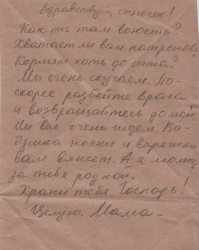 Здравствуй, сыночек!
Как ты там воюешь?
Хватает ли вам патронов,
Кормят хоть до сыта?
Мы очень скучаем. По-
скорее разбейте врага
и возвращайтесь домой,
Мы вас очень ждем. Ба-
бушка носки и варежки
вам вяжет. А я молюсь
за тебя родной.
Храни тебя Господь!
Целую. Мама.